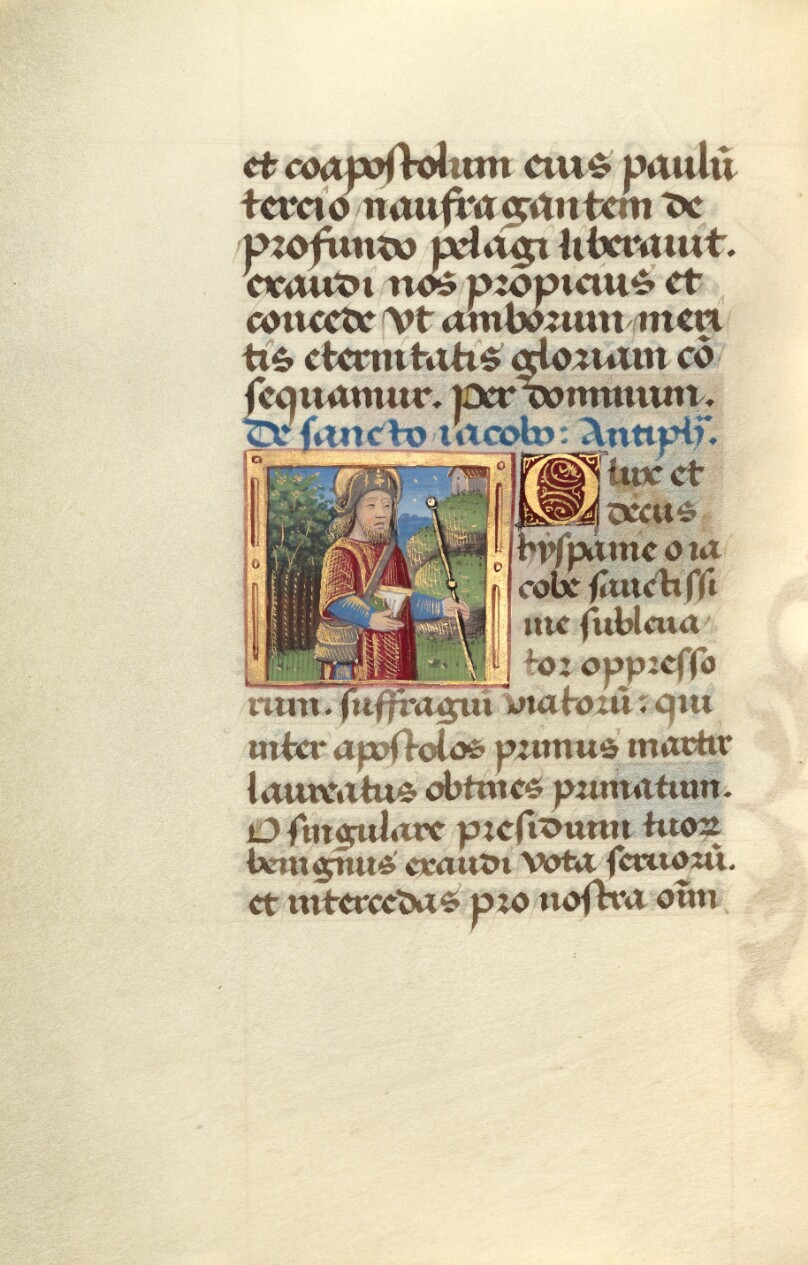 et coapostolum eius paulū
tercio naufragantem de
profundo pelagi liberauit.
exaudi nos propicius et
concede vt amborum meri
tis eternitatis gloriam cō
sequamur. Per dominum.
De sancto iacobo: Antiph̄.
O lux et
decus
hyspanie o ia
cobe sanctissi
me subleua
tor oppresso
rum. suffragiū viatorū: qui
inter apostolos primus martir
laureatus obtines primatum.
O singulare presidium tuoꝝ
benignus exaudi vota seruorū.
et intercedas pro nostra oīm